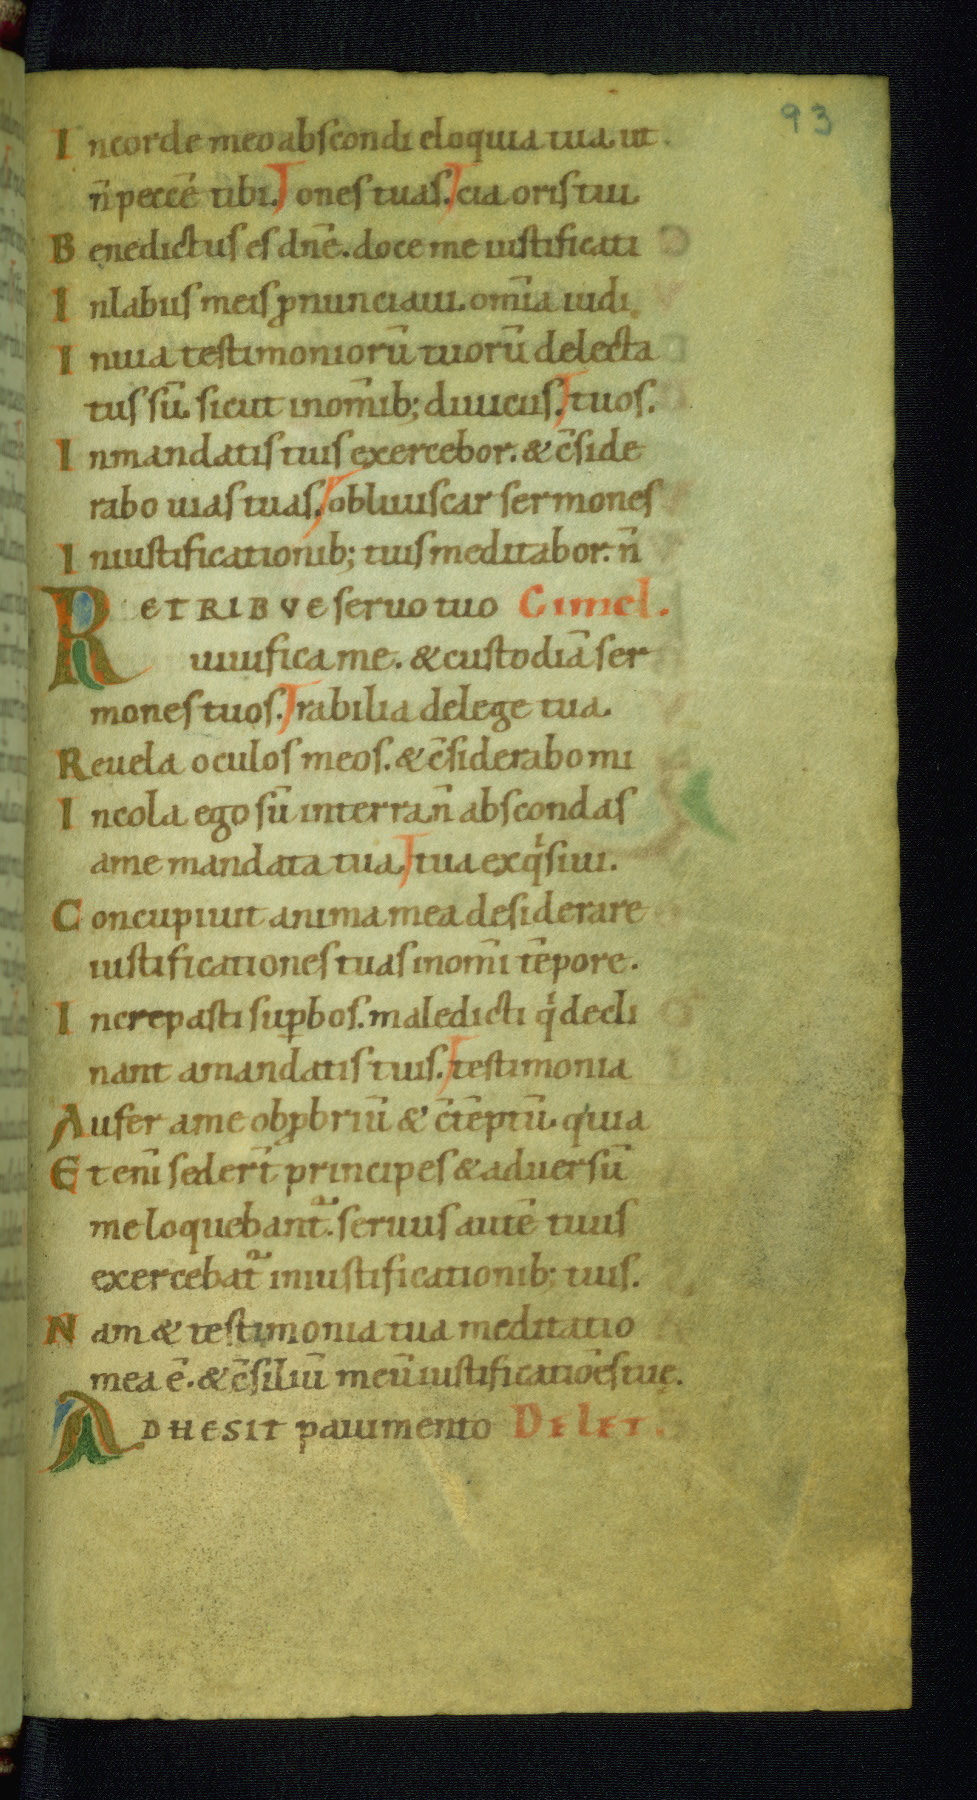 93
In corde meo abscondi eloquia tua. ut.
n̄ peccē tibi. ones tuas. cia oris tui.
Benedictus es dn̄e. doce me iustificati
In labiis meis ꝓnunciaui. om̄ia iudi.
In uia testimoniorū tuorū delecta
tus sū. sicut in om̄ib; diuiciis. tuos.
In mandatis tuis exercebor. & c̄side
rabo uias tuas. obliuiscar sermones
In iustificationib; tuis meditabor. n̄
RETRIBVE seruo tuo Gimel.
uiuifica me. & custodiā ser
mones tuos. rabilia de lege tua.
Reuela oculos meos. & c̄siderabo mi
Incola ego sū in terra. n̄ abscondas
a me mandata tua. tua exqͥsiui.
Concupiuit anima mea desiderare
iustificationes tuas in om̄i tēpore.
Increpasti suꝑbos. maledicti qͥ decli
nant a mandatis tuis. testimonia
Aufer a me obꝓbriū & c̄tēptū. quia
Eteni̅ sederī principes & aduersū
me loquebant᷑. seruus autē tuus
exercebat᷑ in iustificationib; tuis.
Nam & testimonia tua meditatio
mea ē. & c̄siliū meū iustificatiōes tuę.
ADHESIT pauimento Delet.